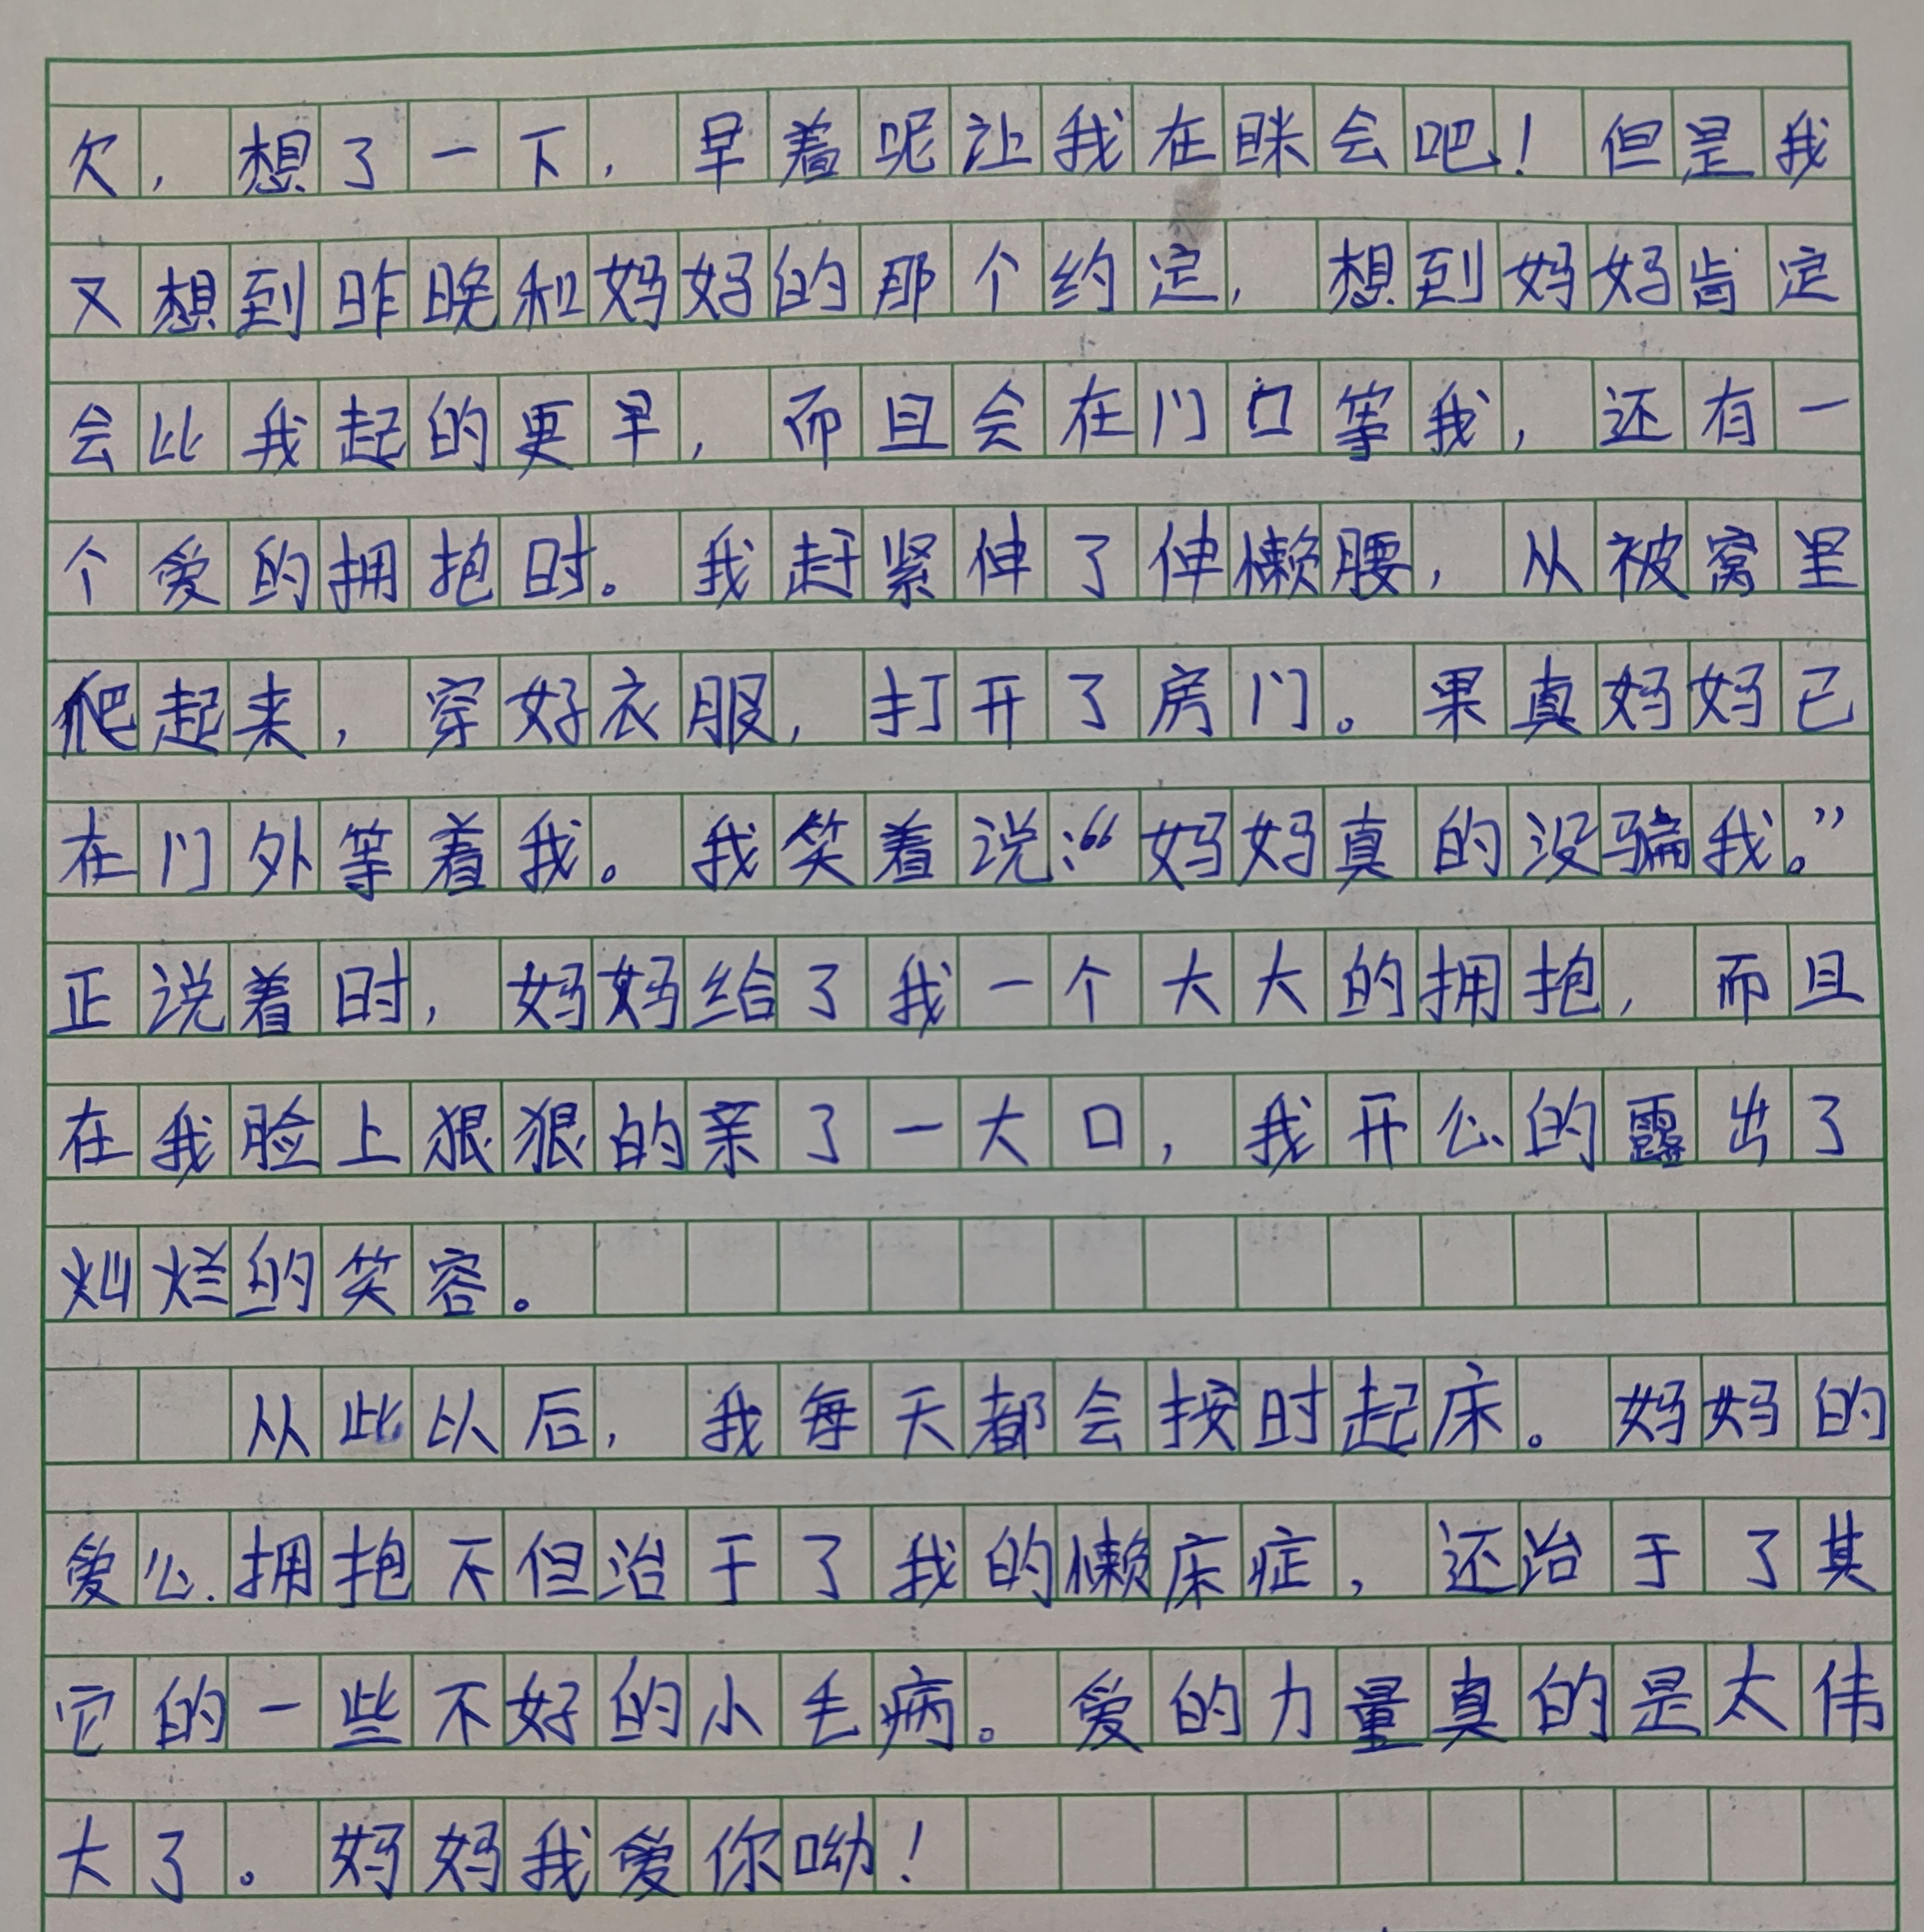 欠，想了一下，早着呢让我在眯会吧！但是我
又想到昨晚和妈妈的那个约定，想到妈妈肯定
会比我起的更早，而且会在门口等我，还有一
个爱的拥抱时。我赶紧伸了伸懒腰，从被窝里
爬起来，穿好衣服，打开了房门。果真妈妈已
在门外等着我。我笑着说：“妈妈真的没骗我。”
正说着时，妈妈给了我一个大大的拥抱，而且
在我脸上狠狠的亲了一大口，我开心的露出了
灿烂的笑容。
从此以后，我每天都会按时起床。妈妈的
爱心拥抱不但治于了我的懒床症，还治于了其
它的一些不好的小毛病。爱的力量真的是太伟
大了。妈妈我爱你呦！